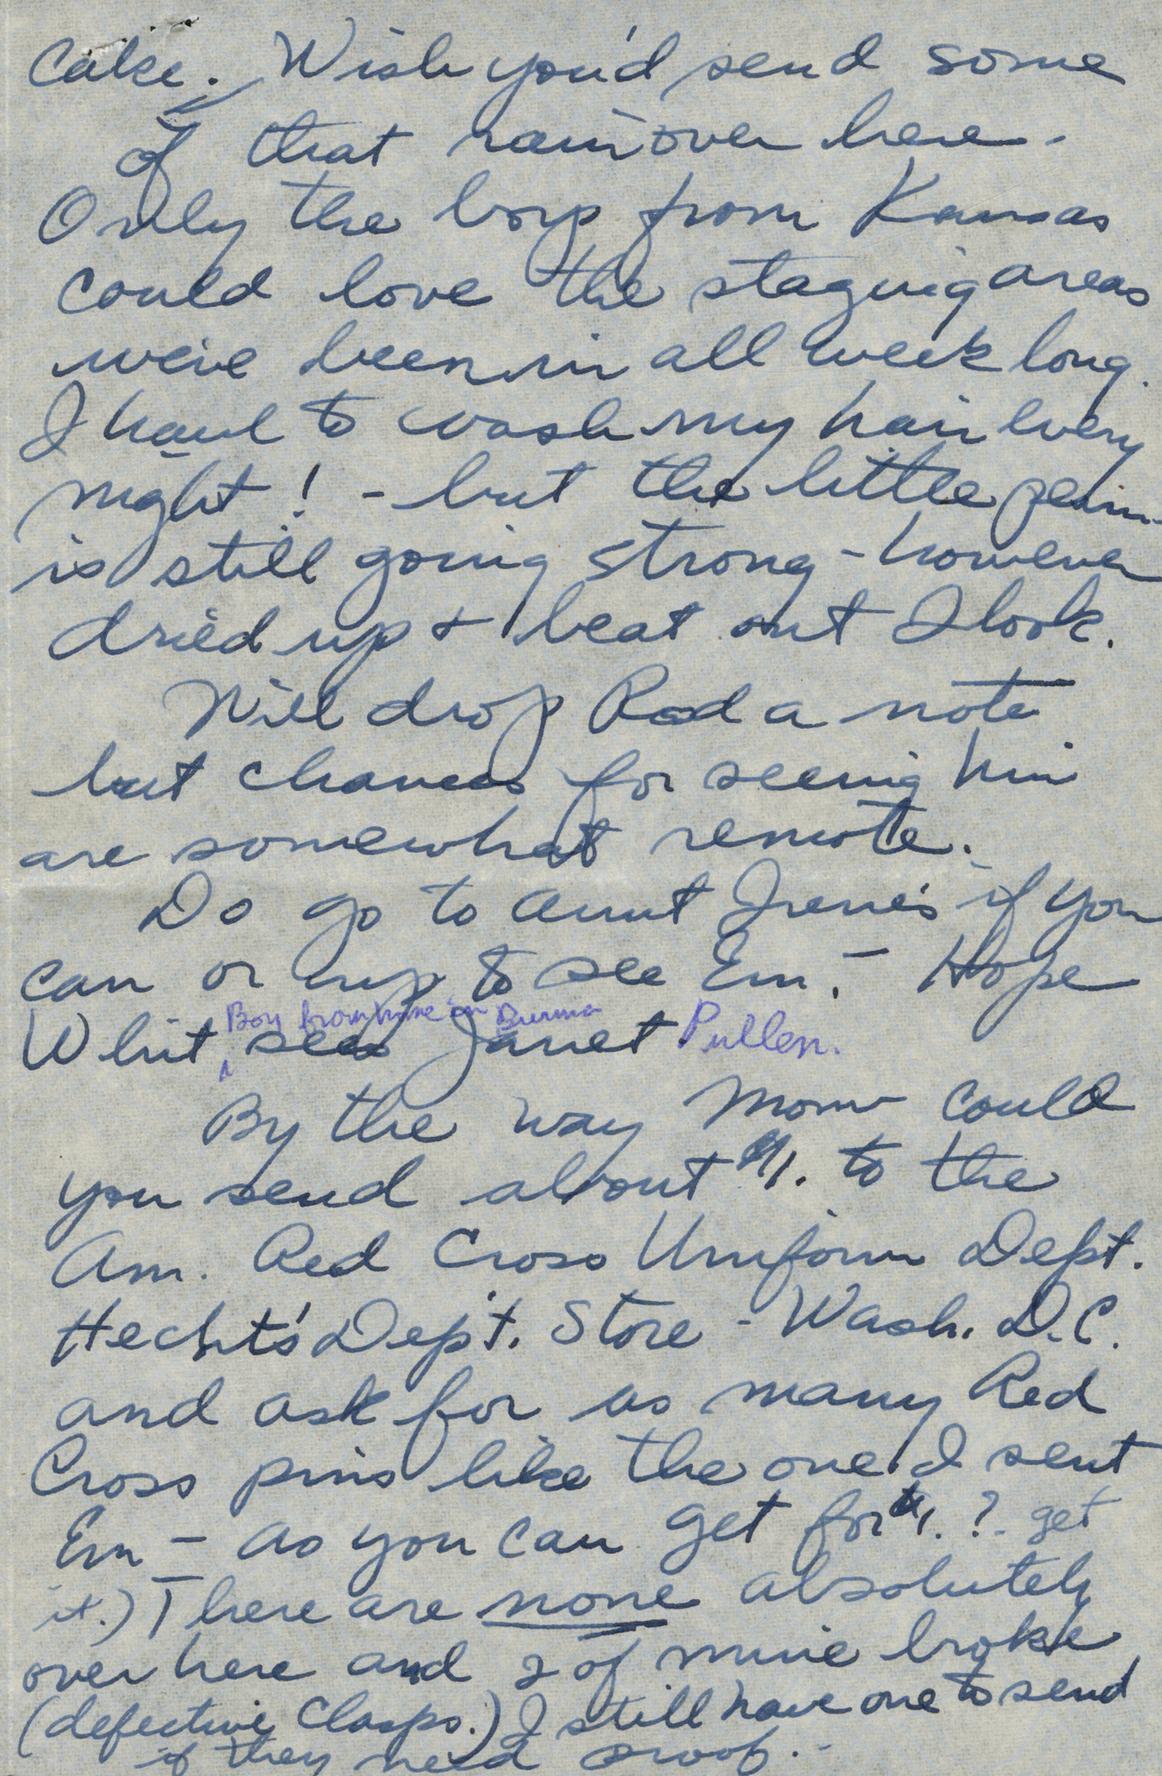 Cake. Wish you'd send some
of that rain over here.
Only the boys from Kansas
could love the staging areas
we've been in all week long.
I have to wash my hair every
night! - but the little perm
is still going strong - however
dried up & beat out I look.
Will drop Rod a note
but chances for seeing him
are somewhat remote.
Do go to Aunt Irene's if you
can or up to see Em. - Hope
Boy from home in Burma
Whit sees Janet Pullen.
By the way Mom could
you send about $1. to the
Am. Red Cross Uniform Dept.
Hecht's Dep't. Store - Wash. D.C.
and ask for as many Red
Cross pins like the one I sent
Em - as you can get for $1. ? get
it.) There are none absolutely
over here and 2 of mine broke
(defective clasps.) I still have one to send
if they need proof. -